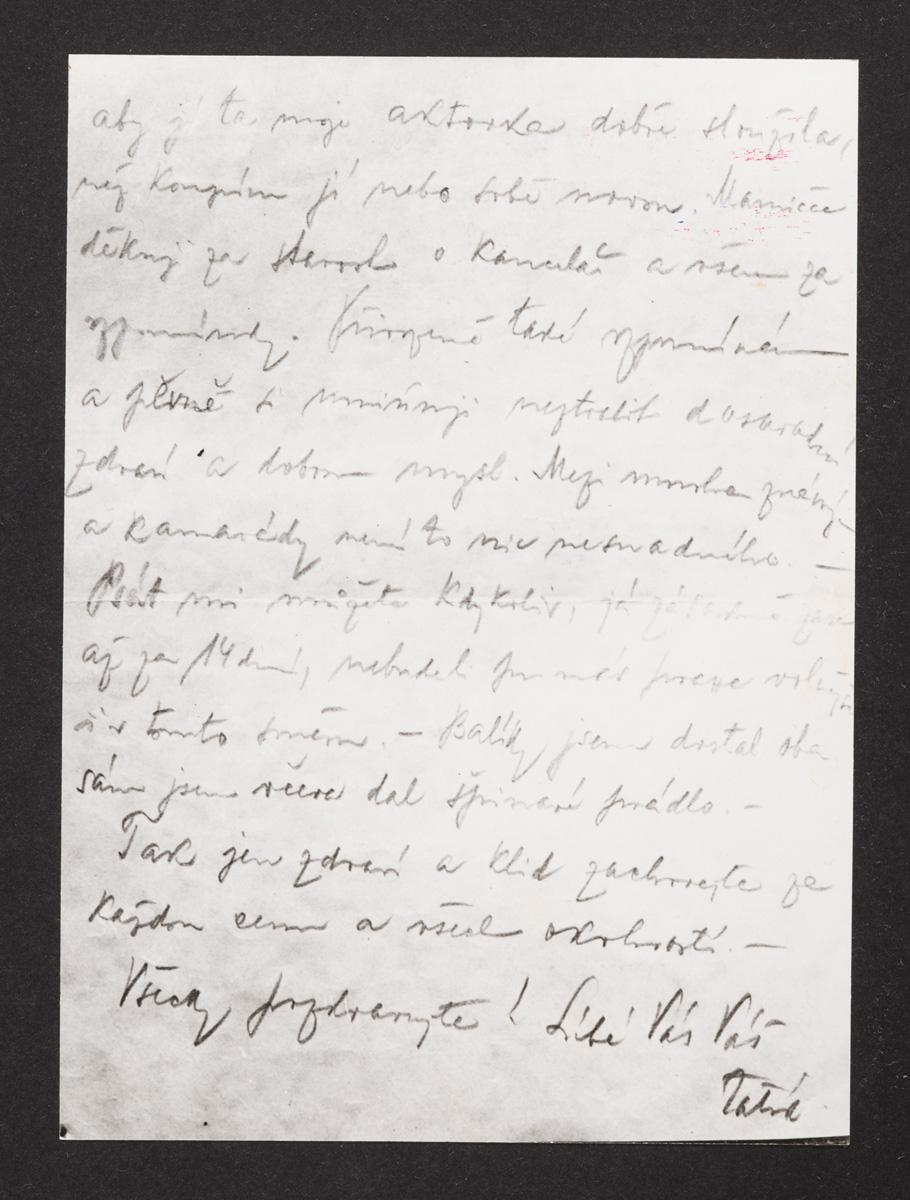 aby jí ta moje aktovka dobře sloužila,
než koupím jí nebo sobě novou. Mamince
děkuji za starost o kancelář a všem za
vzpomínky. Přirozeně také vzpomínám
a pevně si umiňuji neztratit dosavadní
zdraví a dobrou mysl. Mezi mnoha známými
a kamarády není to nic nesnadného. —
Psát mi můžete kdykoliv, já zásadně zase
až za 14 dní, nebudeli pro nás praxe volnější
i v tomto směru. — Balíky jsem dostal oba
sám jsem včera dal špinavé prádlo. —
Tak jen zdraví a klid zachovejte za
každou cenu a všech okolností. —
Všecky pozdravujte! Líbá Vás Váš
Taťka